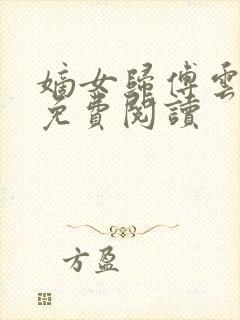 嫡女歸傅雲
免費閱讀
方盈